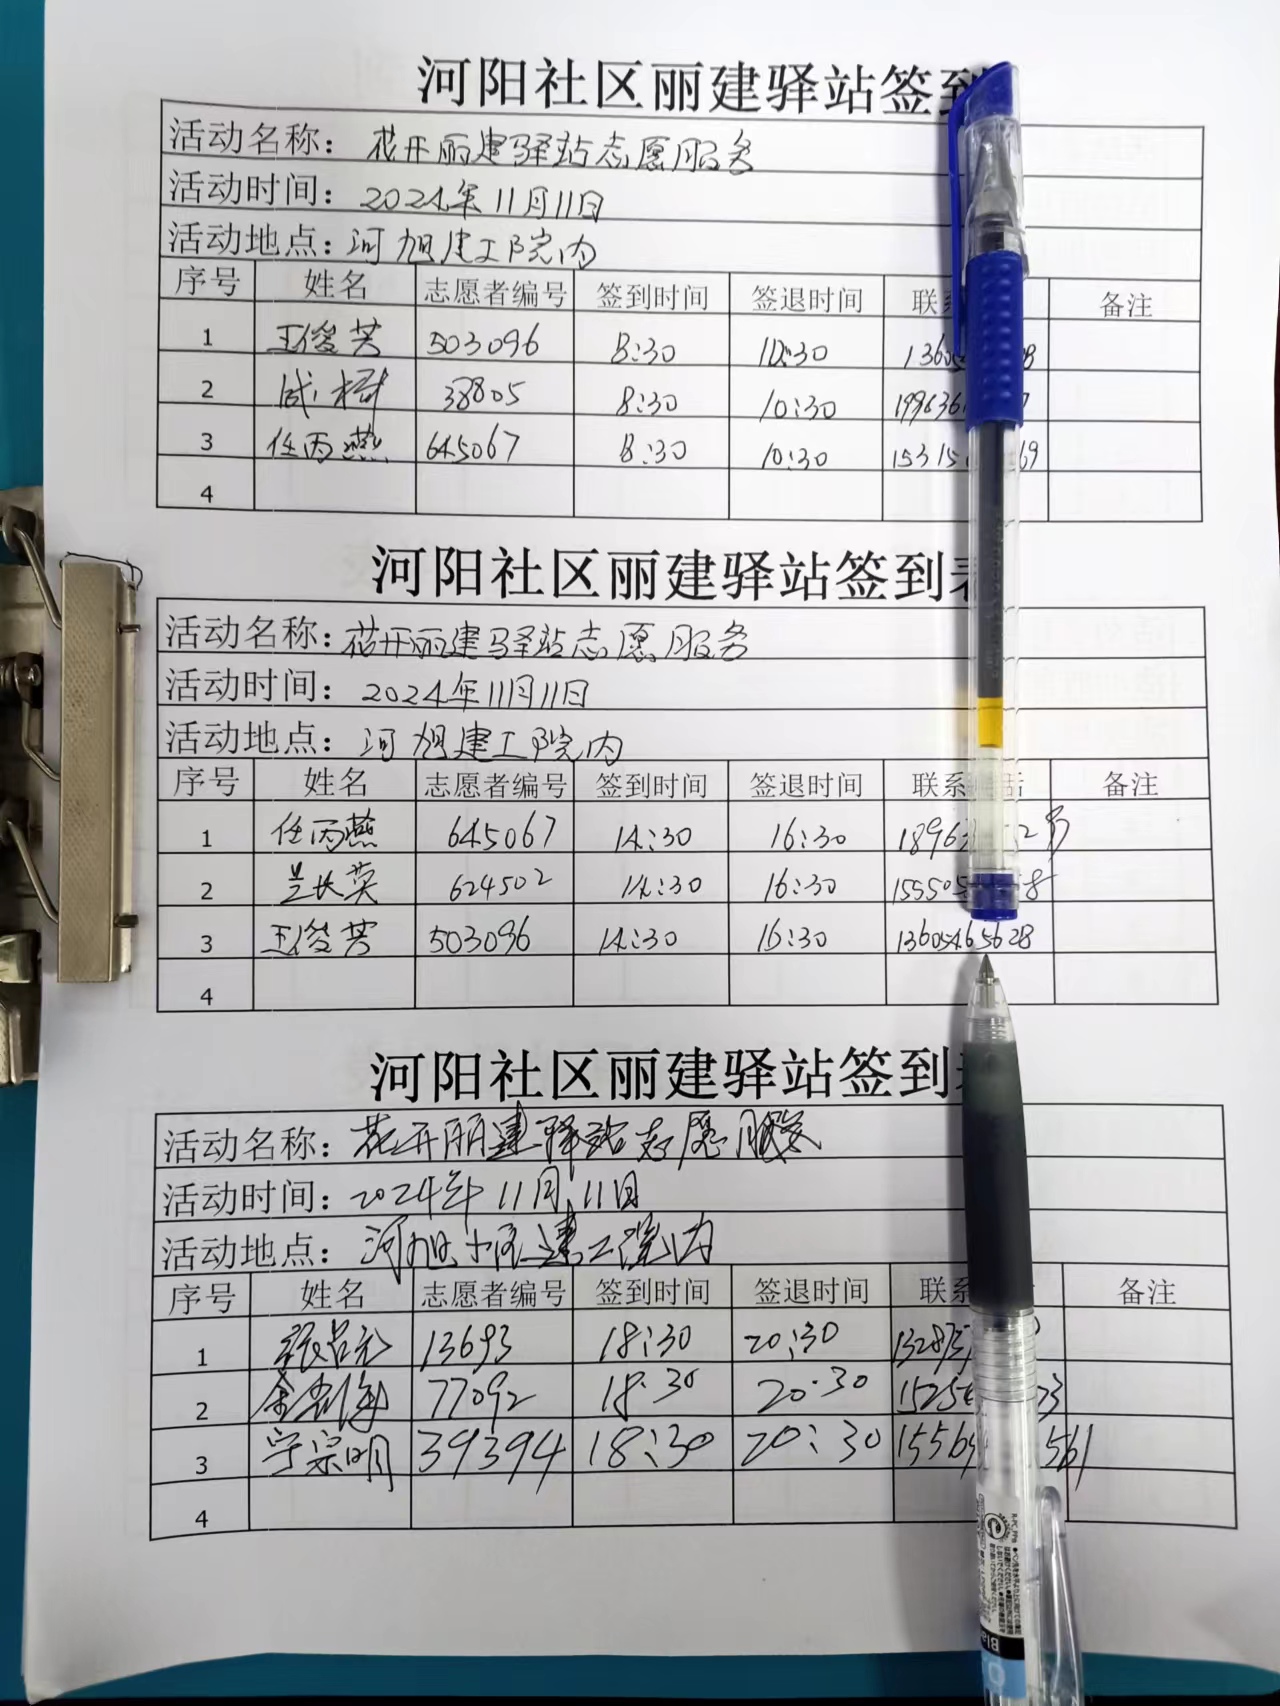 河阳社区丽建驿站签到
活动名称：花开丽建驿站志愿服务
活动时间：2024年11月11日
活动地点：河旭建工院内
序号 姓名 志愿者编号 签到时间 签退时间 联系 备注
1 王俊芳 503096 8:30 10:30 1360
2 成树 38805 8:30 10:30 199636
3 任丙燕 645067 8:30 10:30 15315 69
4
河阳社区丽建驿站签到表
活动名称：花开丽建驿站志愿服务
活动时间：2024年11月11日
活动地点：河旭建工院内
序号 姓名 志愿者编号 签到时间 签退时间 联系 话 备注
1 任丙燕 645067 14:30 16:30 1896
2 兰长英 624502 14:30 16:30 15550 8
3 王俊芳 503096 14:30 16:30 13605465628
4
河阳社区丽建驿站签到表
活动名称：花开丽建驿站志愿服务
活动时间：2024年11月11日
活动地点：河旭小区建工院内
序号 姓名 志愿者编号 签到时间 签退时间 联系 备注
1 13693 18:30 20:30 13287
2 77092 18:30 20:30 1525 3
3 宁宗明 39394 18:30 20:30 1556 561
4